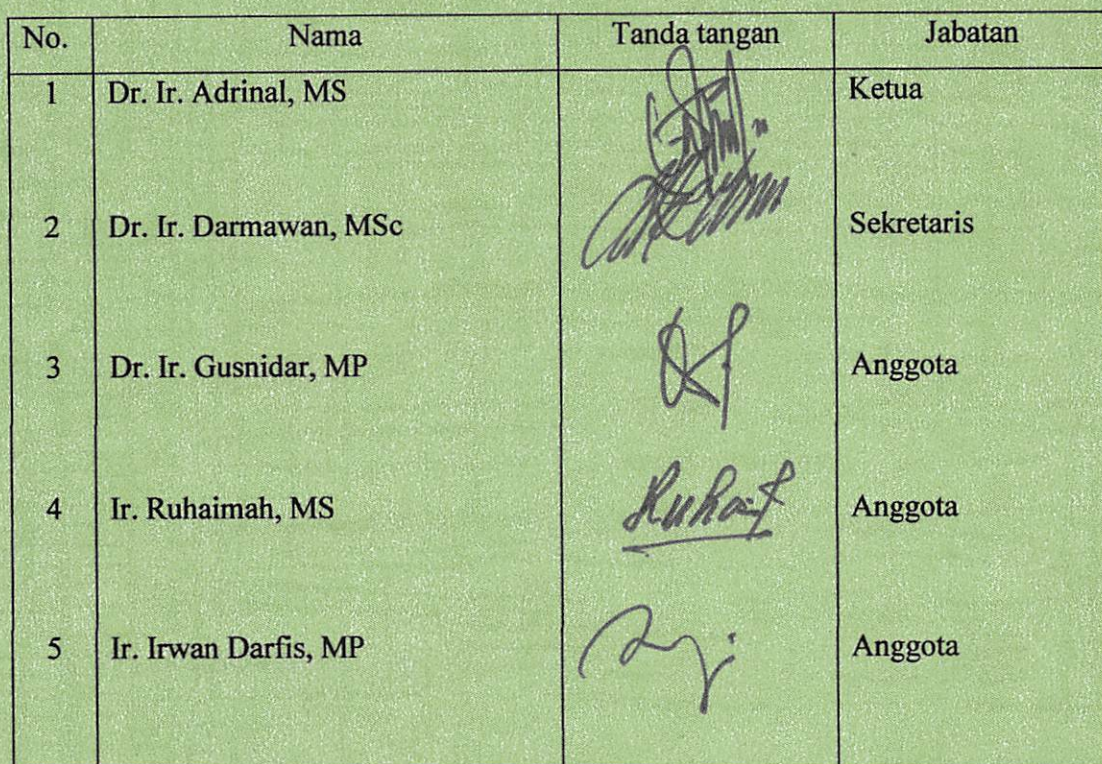 No. Nama Tanda tangan Jabatan
1 Dr. Ir. Adrinal, MS Ketua
2 Dr. Ir. Darmawan, MSc Sekretaris
3 Dr. Ir. Gusnidar, MP Anggota
4 Ir. Ruhaimah, MS Anggota
5 Ir. Irwan Darfis, MP Anggota